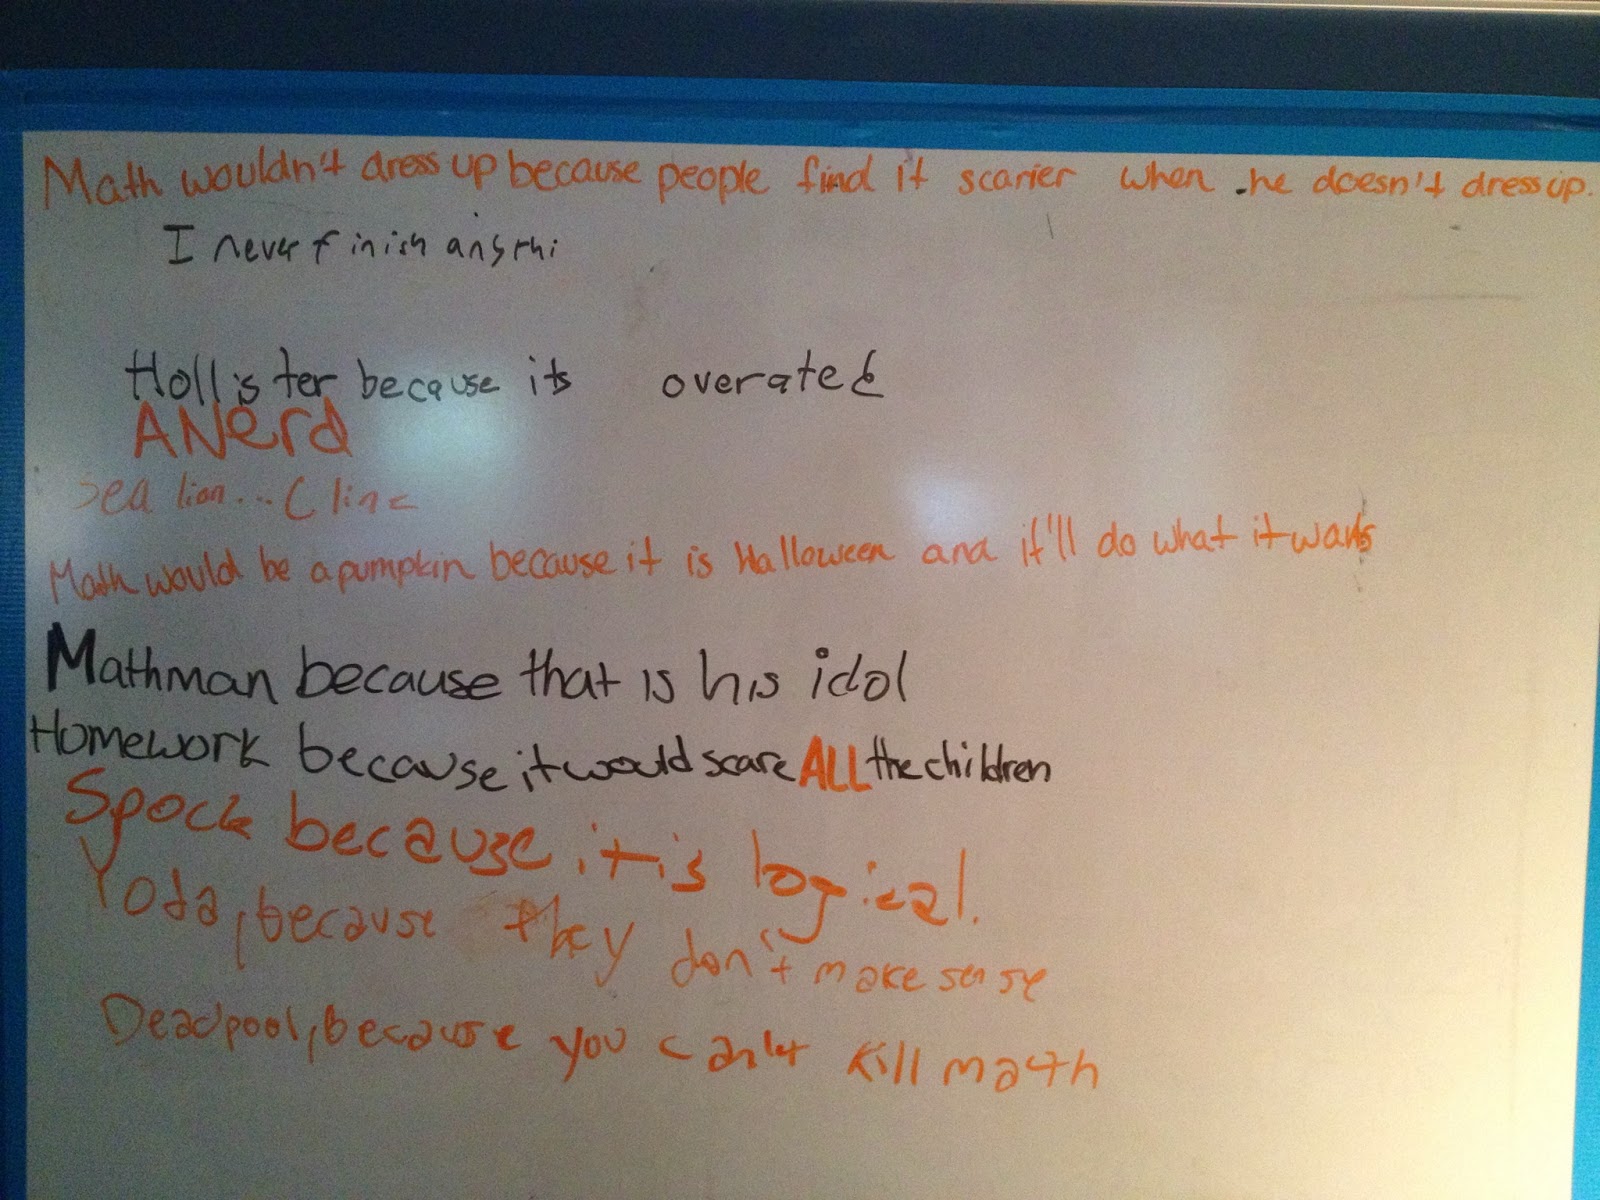 Math wouldn't dress up because people find it scarier when he doesn't dress up.
I never finish anythi
Hollister because its overated
A Nerd
Sea lion... (line
Math would be a pumpkin because it is Halloween and it'll do what it wants
Mathman because that is his idol
Homework because it would scare ALL the children
Spock because it is logical.
Yoda, because they don't make sense
Deadpool, because you can't kill math